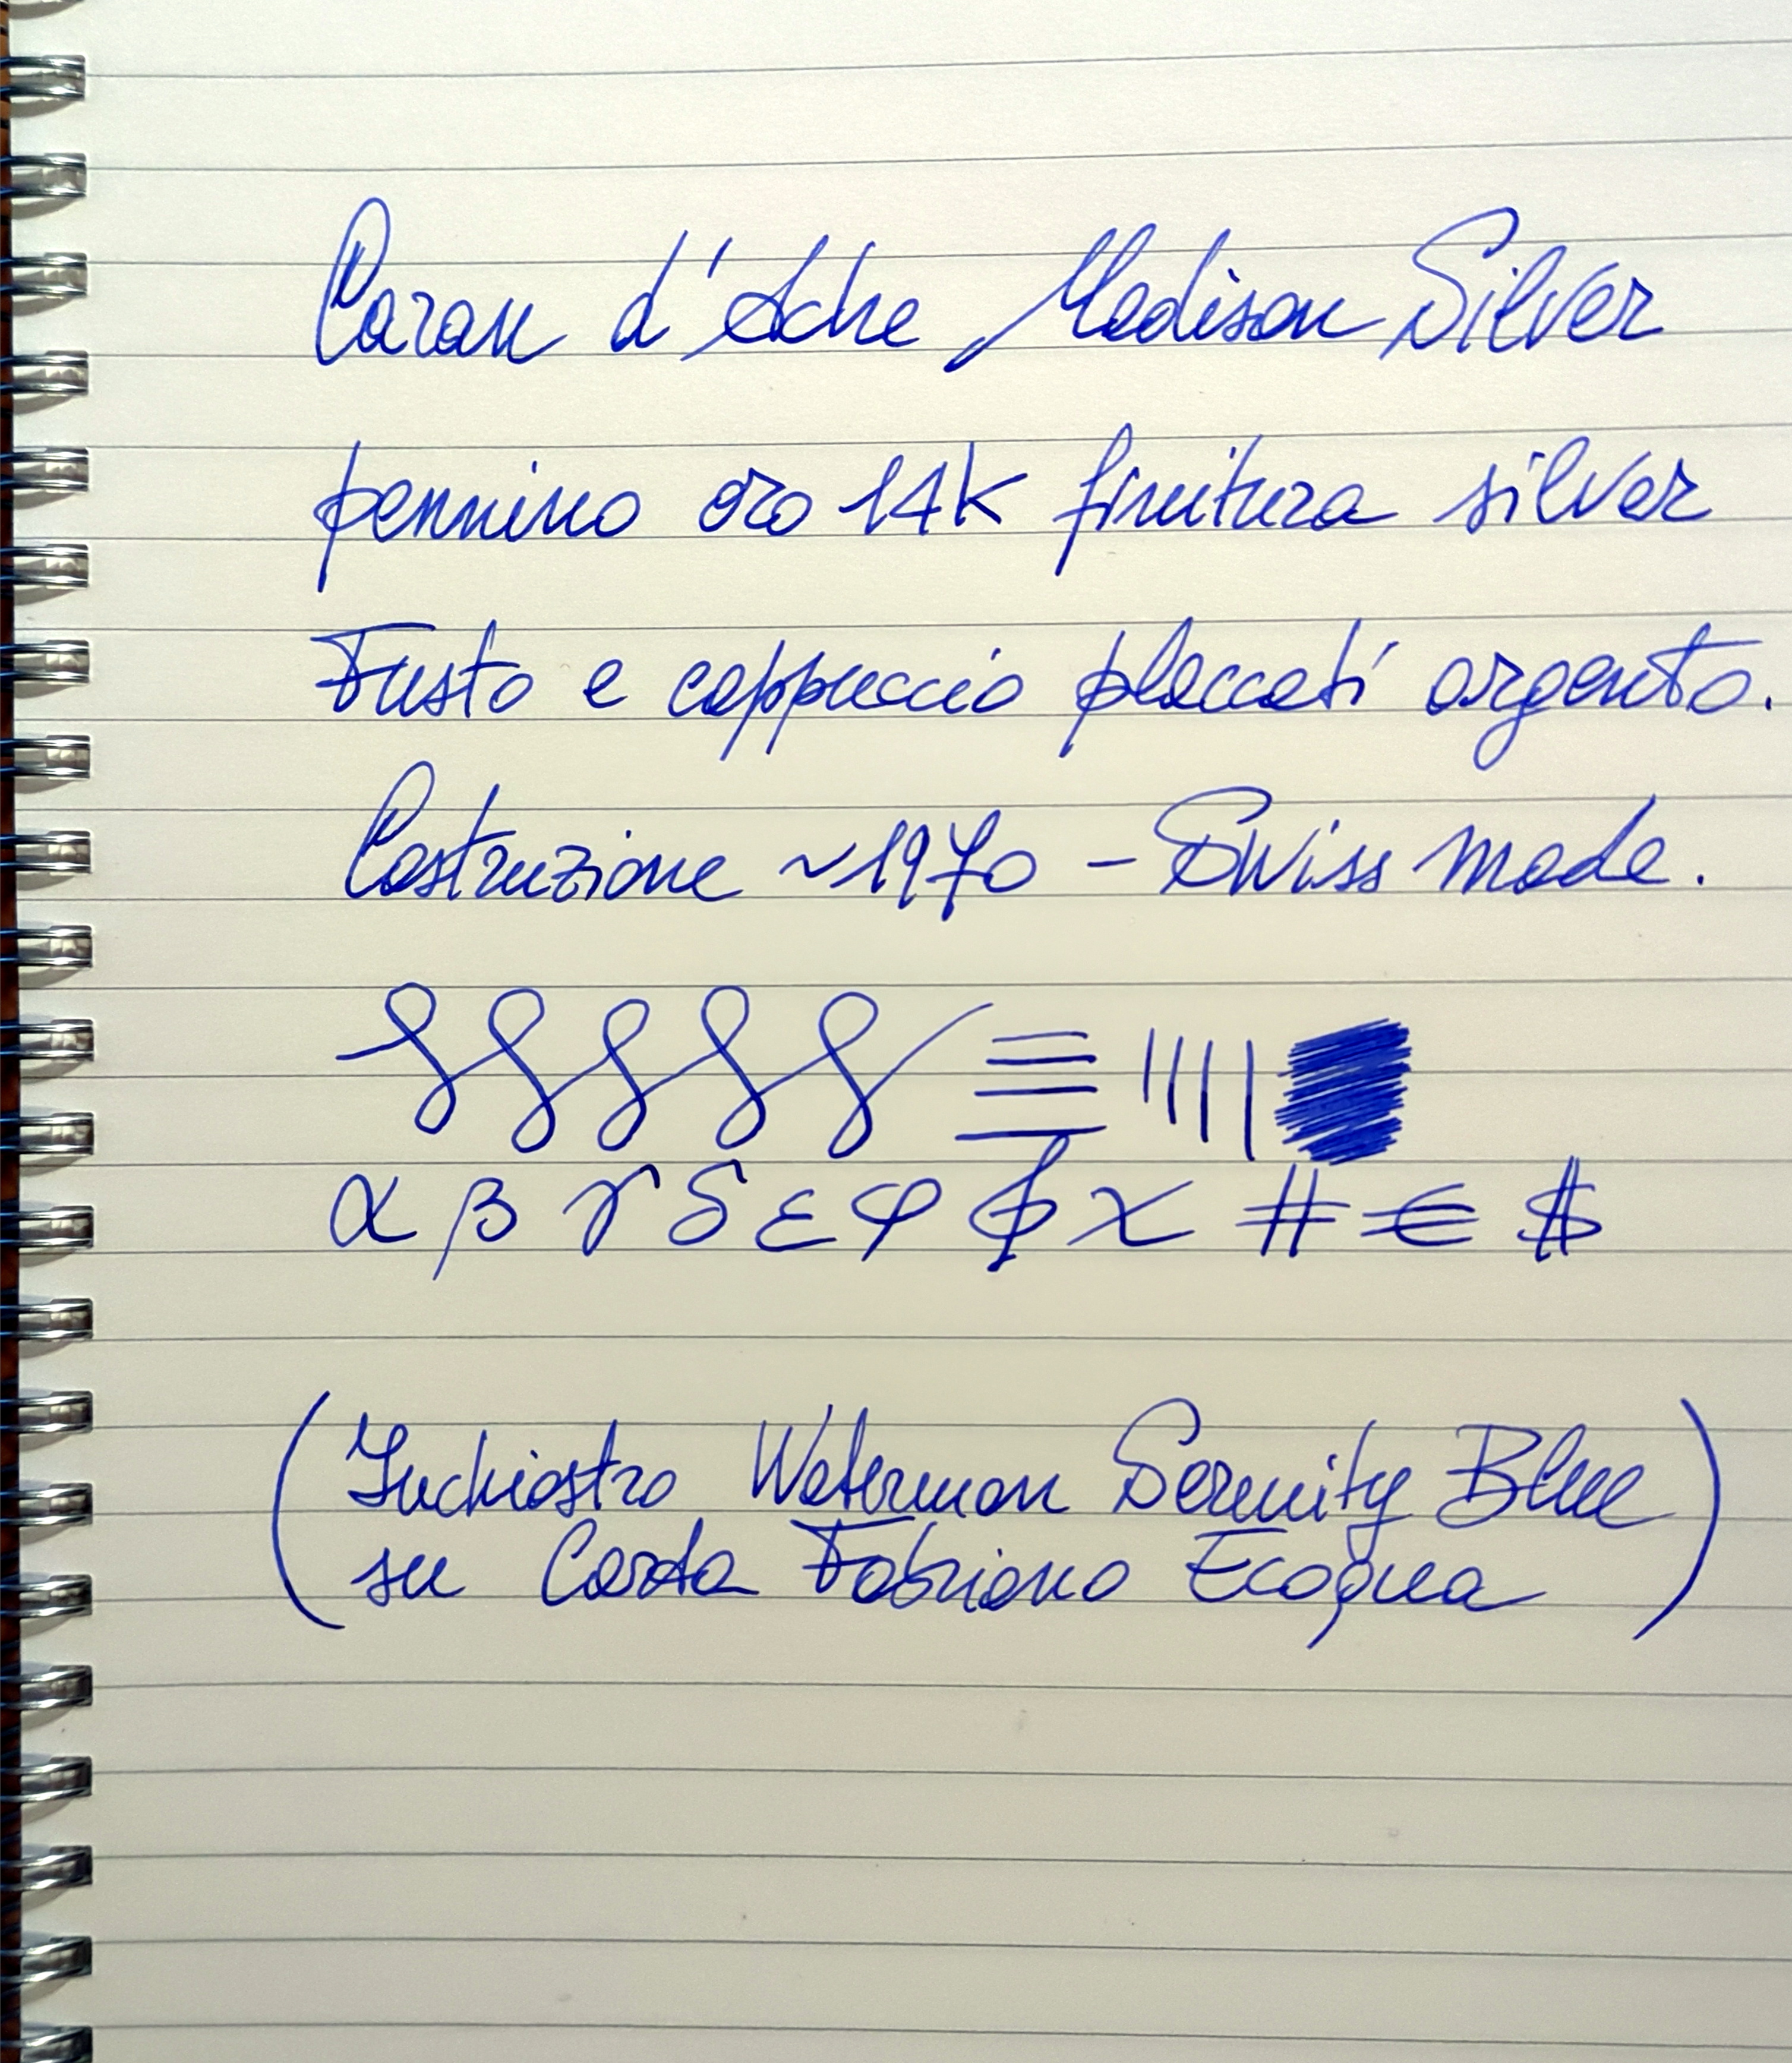 Caran d'Ache Madison Silver
pennino oro 14K finitura silver
Fusto e cappuccio placcati argento.
Costruzione ~1970 - Swiss made.
α β γ δ ε φ ϕ χ # € $
(Inchiostro Waterman Serenity Blue
su Carta Fabriano Ecoqua)